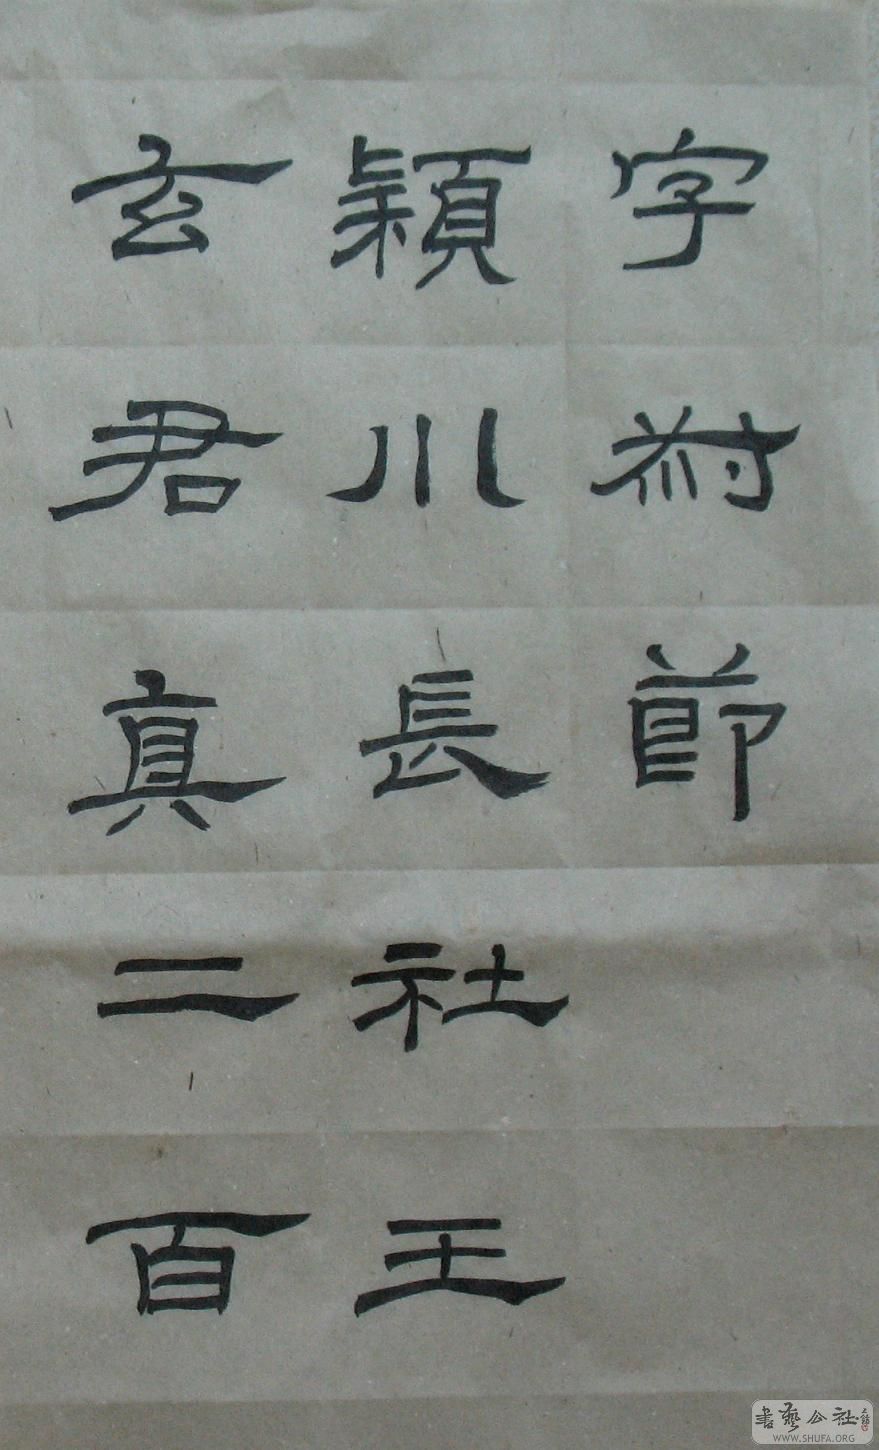 字叔節
潁川長社王
玄君真二百
書藝公社
WWW.SHUFA.ORG